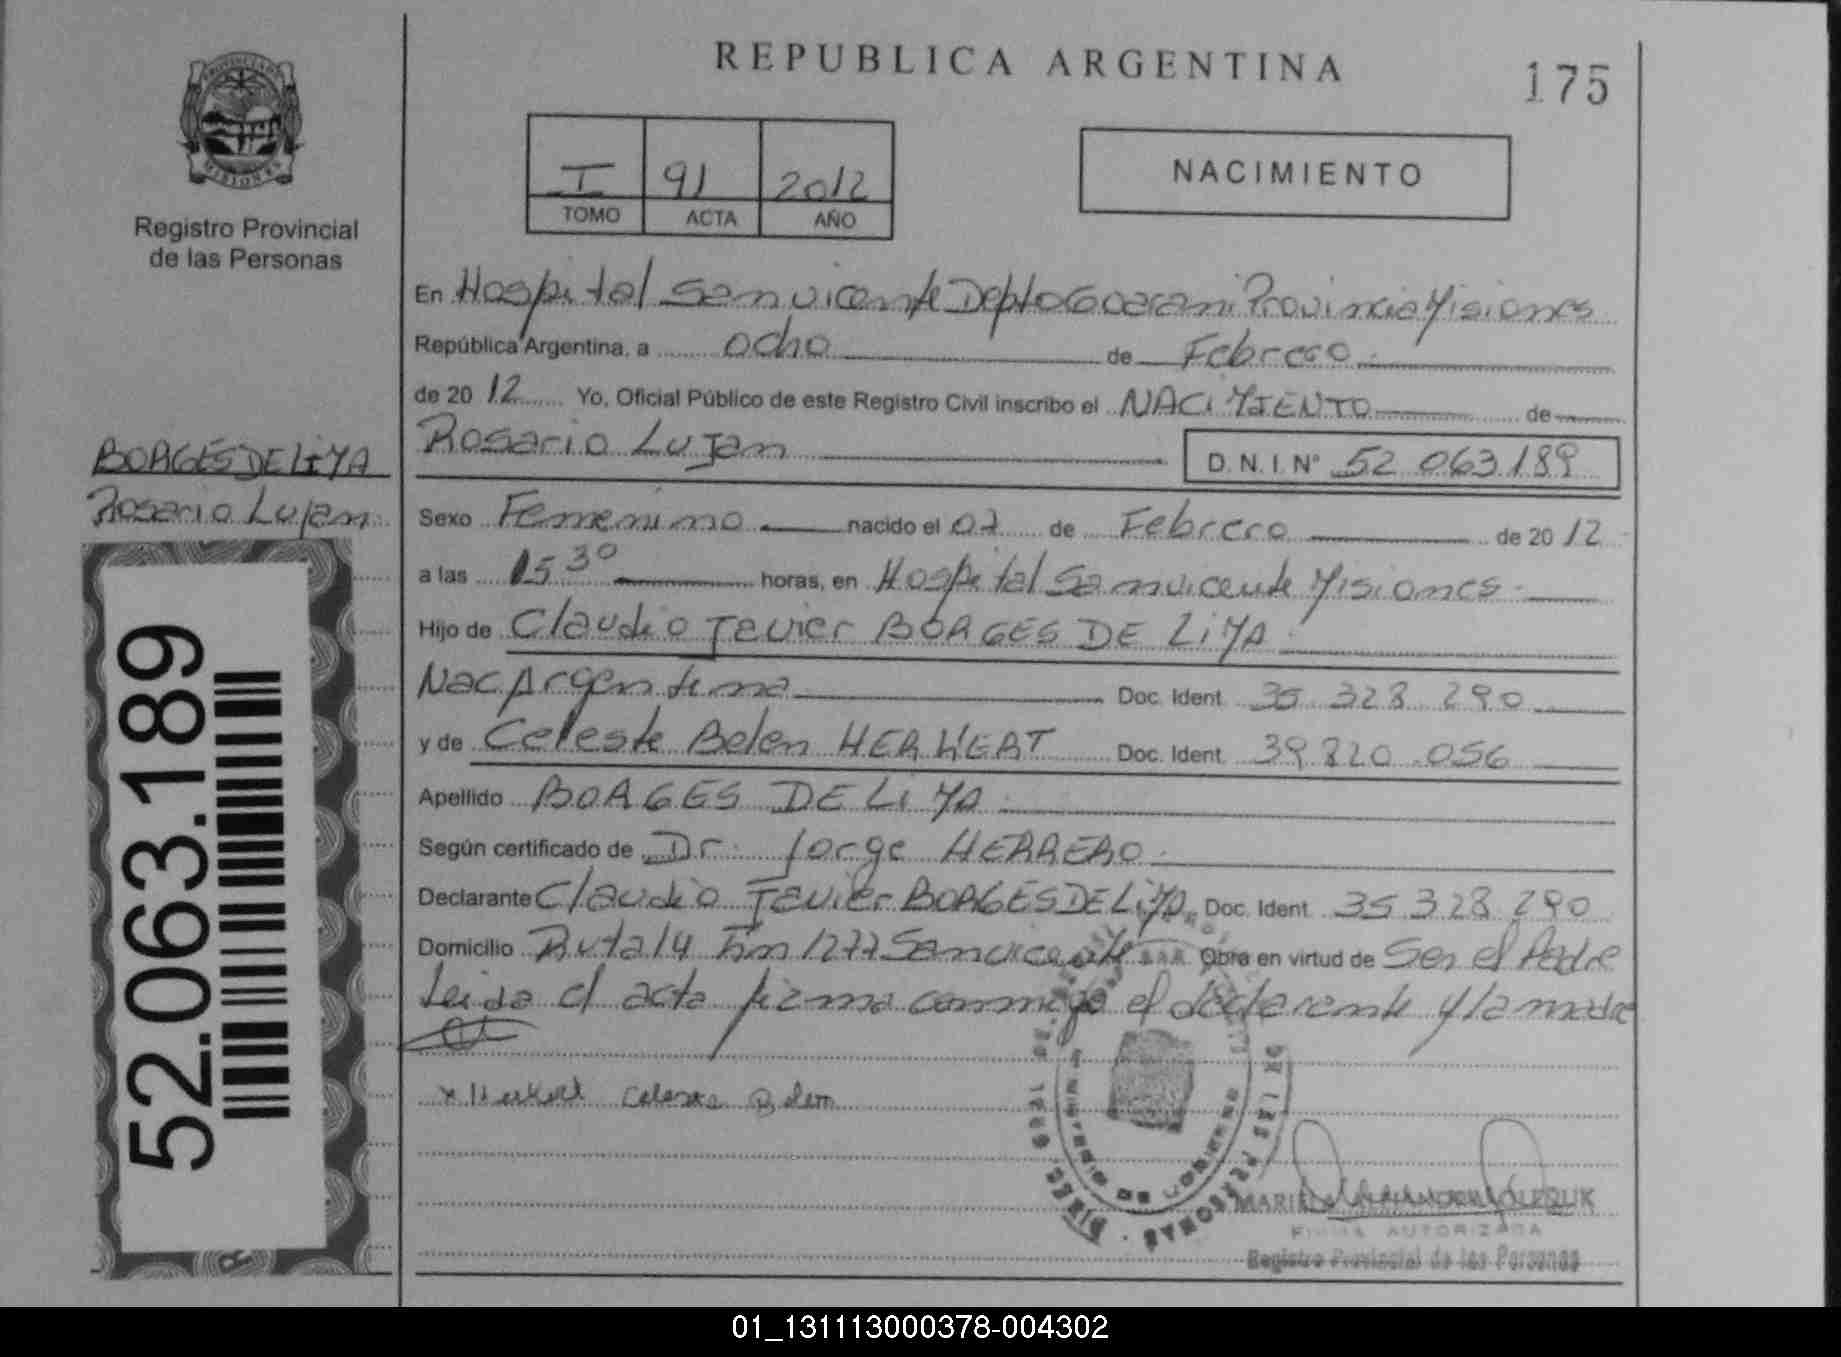 REPUBLICA ARGENTINA
175
PROVINCIA DE
MISIONES
Registro Provincial
de las Personas
I 91 2012
TOMO ACTA AÑO
NACIMIENTO
En Hospital San vicente Depto Guarani Provincia Misiones
República Argentina, a ocho de Febrero
de 2012 Yo, Oficial Público de este Registro Civil inscribo el NACIMIENTO de
Rosario Lujan D.N.I. N° 52 063 189
BORGES DE LIMA
Rosario Lujan
Sexo Femenino nacido el 07 de Febrero de 2012
a las 15 30 horas, en Hospital San vicente Misiones
Hijo de Claudio Javier BORGES DE LIMA
Nac Argentina Doc. Ident. 35 328 290
y de Celeste Belen Doc. Ident. 39 820 056
Apellido BORGES DE LIMA
Según certificado de Dr. Jorge HERRERO
Declarante Claudio Javier BORGES DE LIMA Doc. Ident. 35 328 290
Domicilio Ruta 14 Km 1277 San vicente Obra en virtud de Ser el Padre
Leida el acta firma conmigo el declarante y la madre
Celeste Belen
52.063.189
DE LAS PERSONAS
MINISTERIO DE GOBIERNO
FIRMA AUTORIZADA
Registro Provincial de las Personas
01_131113000378-004302